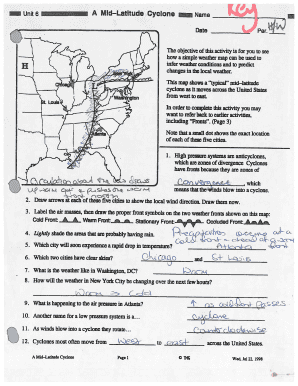 Unit 6 A Mid-Latitude Cyclone Name Key
Date Per. H/W
H
Chicago
New York
St. Louis
Washington
Atlanta
The objective of this activity is for you to see
how a simple weather map can be used to
infer weather conditions and to predict
changes in the local weather.
This map shows a "typical" mid-latitude
cyclone as it moves across the United States
from west to east.
In order to complete this activity you may
want to refer back to earlier activities,
including "Fronts". (Page 3)
Note that a small dot shows the exact location
of each of these five cities.
1. High pressure systems are anticyclones,
which are zones of divergence Cyclones
have fronts because they are zones of
Convergence, which
means that the winds blow into a cyclone.
Circulation about the low draws
2. Draw arrows at each of these five cities to show the local wind direction. Draw them now.
3. Label the air masses, then draw the proper front symbols on the two weather fronts shown on this map:
Cold Front: Warm Front: Stationary Front: Occluded Front:
4. Lightly shade the areas that are probably having rain.
Precipitation occurring at a
cold front - ahead of warm
front
5. Which city will soon experience a rapid drop in temperature? Atlanta
6. Which two cities have clear skies? Chicago and St Louis
7. What is the weather like in Washington, DC? Warm
8. How will the weather in New York City be changing over the next few hours?
Warm > Cold
9. What is happening to the air pressure in Atlanta? ↑ as cold front passes
10. Another name for a low pressure system is a... cyclone
11. As winds blow into a cyclone they rotate... counterclockwise
12. Cyclones most often move from West to east across the United States.
A Mid-Latitude Cyclone Page 1 Wed, Jul 22, 1998